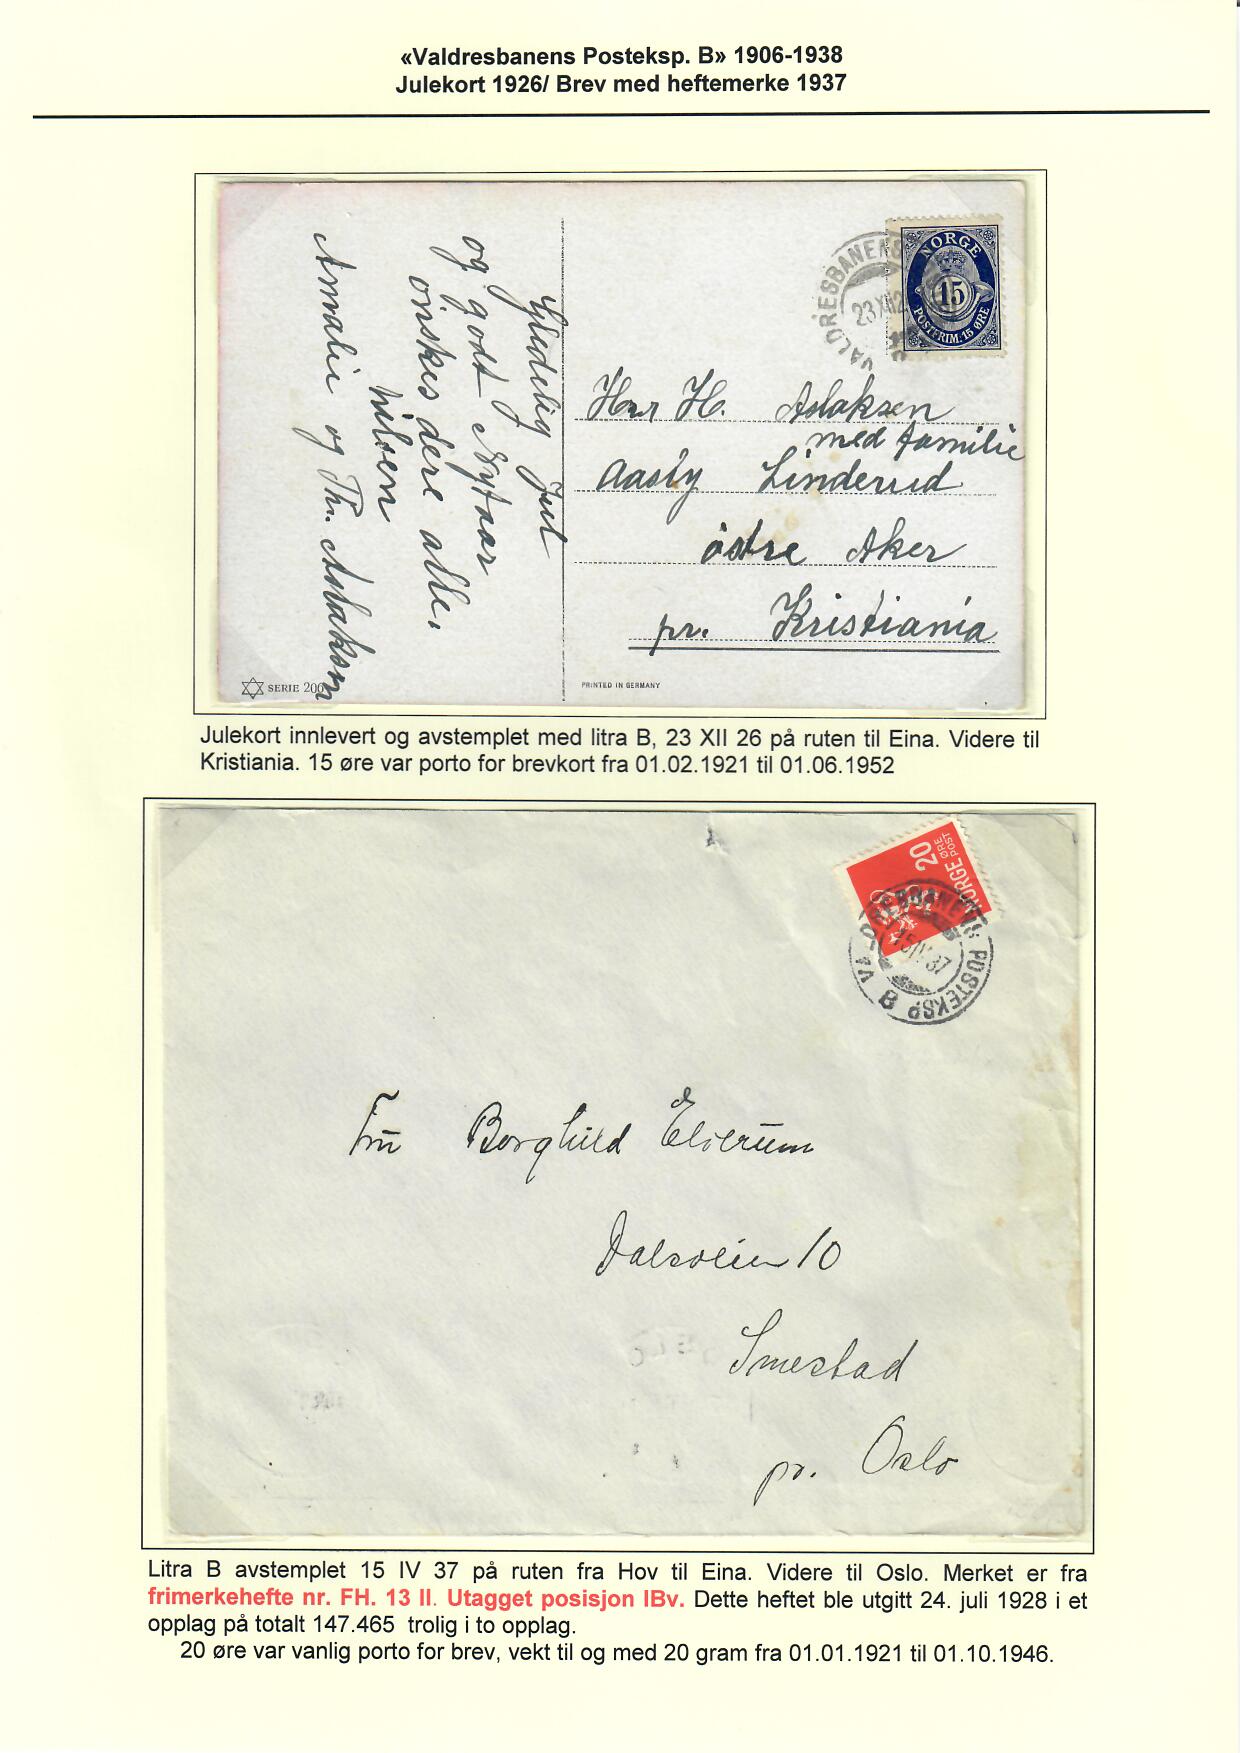 «Valdresbanens Posteksp. B» 1906-1938
Julekort 1926/ Brev med heftemerke 1937
Glædelig Jul
og godt Nytaar
önskes dere alle,
hilsen
Amalie og Thr. Aslaksen
SERIE 200
PRINTED IN GERMANY
VALDRESBANENS
23 XII 2
NORGE
15
POSTFRIM. 15 ØRE
Herr H. Aslaksen
med familie
Aasly Linderud
östre Aker
pr. Kristiania
Julekort innlevert og avstemplet med litra B, 23 XII 26 på ruten til Eina. Videre til
Kristiania. 15 øre var porto for brevkort fra 01.02.1921 til 01.06.1952
20
ØRE
POST
NORGE
POSTEKSP B
15 IV 37
Fru Borghild Elverum
Dalsveien 10
Smestad
pr. Oslo
Litra B avstemplet 15 IV 37 på ruten fra Hov til Eina. Videre til Oslo. Merket er fra
frimerkehefte nr. FH. 13 II. Utagget posisjon IBv. Dette heftet ble utgitt 24. juli 1928 i et
opplag på totalt 147.465 trolig i to opplag.
20 øre var vanlig porto for brev, vekt til og med 20 gram fra 01.01.1921 til 01.10.1946.